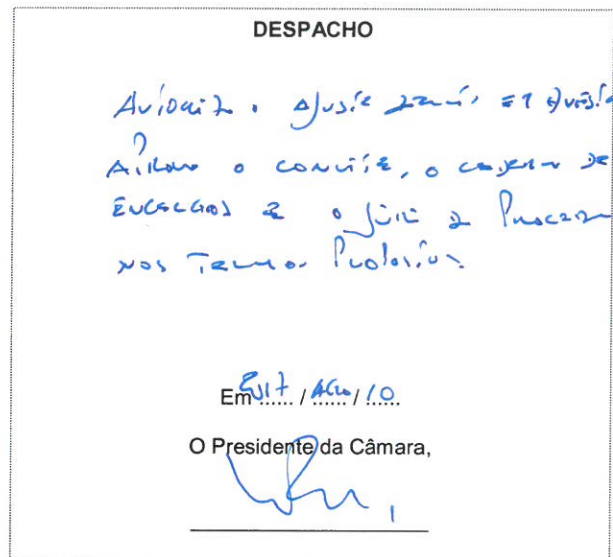 DESPACHO
Autorizo o ajuste direto em questão
Aprovo o convite, o caderno de
encargos e o júri do procedimento
nos termos propostos.
Em 2017 / AGO / 10
O Presidente da Câmara,